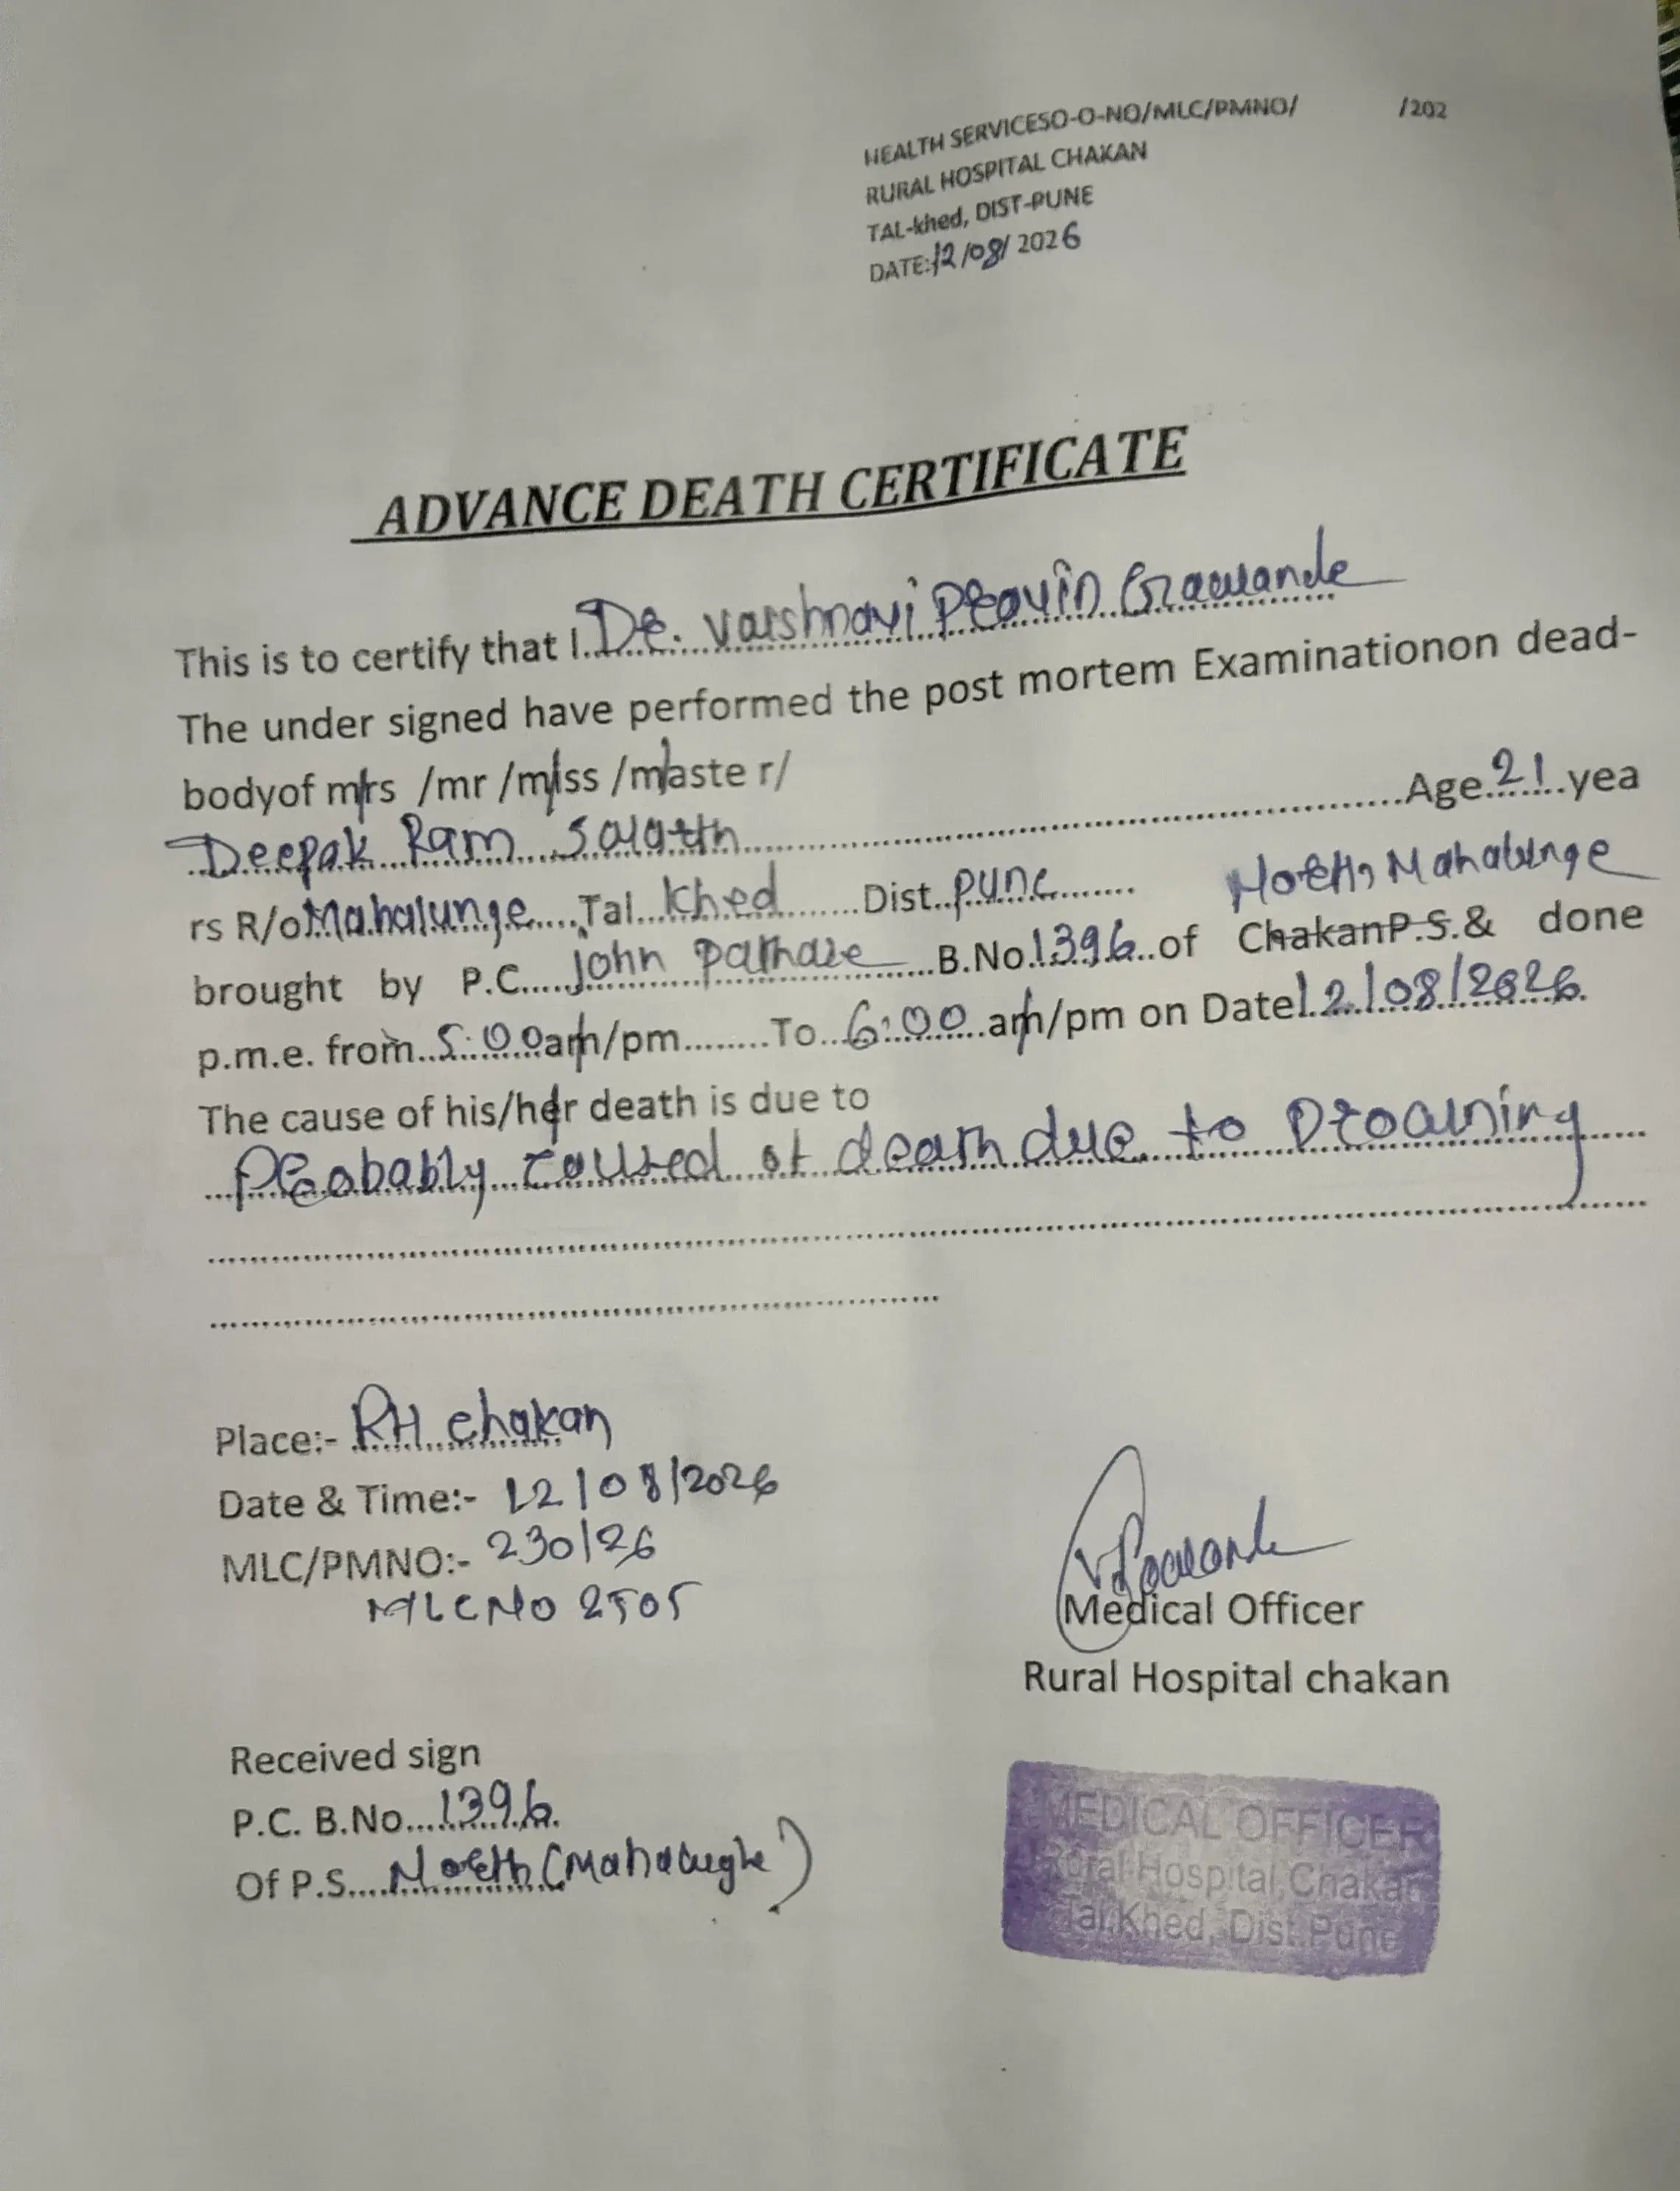 HEALTH SERVICESO-O-NO/MLC/PMNO/ /202
RURAL HOSPITAL CHAKAN
TAL-khed, DIST-PUNE
DATE:12/08/2026
ADVANCE DEATH CERTIFICATE
This is to certify that I...Dr. Varshnavi Pravin Gawande
The under signed have performed the post mortem Examinationon dead-
bodyof mrs /mr /miss /maste r/
Deepak Ram ...Age 21 yea
rs R/o Mahalunge....Tal...Khed.......Dist..pune........ North Mahalunge
brought by P.C.....john ......B.No.1396..of ChakanP.S.& done
p.m.e. from...5:00am/pm........To...6:00..am/pm on Date12/08/2026
The cause of his/her death is due to
Probably caused of death due to Drowning
Place:- RH chakan
Date & Time:- 12/08/2026
MLC/PMNO:- 230/26
MLC NO 2505
Medical Officer
Rural Hospital chakan
Received sign
P.C. B.No...1396.
Of P.S....North (Mahalughe)
MEDICAL OFFICER
Rural Hospital, Chakan
Tal.Khed, Dist.Pune